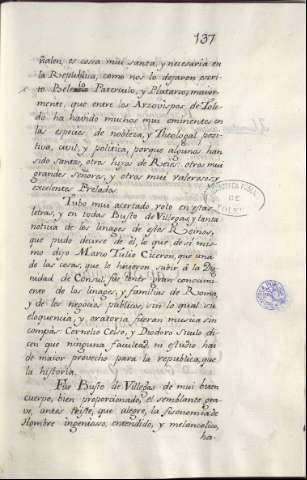 137
ñalen, es cosa mui santa, y necesaria en
la Republica, como nos lo dejaron escri-
to Beleio Paterculo, y Plutarco, maior-
mente, que entre los Arzovispos de Tole-
do ha havido muchos mui eminentes en
las especies de nobleza, y Theologal, posi-
tiva, civil, y politica, porque algunos han
sido santos, otros hijos de Reies, otros mui
grandes señores, y otros mui valerosos, y
excelentes Prelados.
Tubo mui acertado voto en estas
letras, y en todas Busto de Villegas, y tanta
noticia de los linages de estos Reinos,
que pudo decirse de él, lo que de si mis-
mo dijo Marco Tulio Ciceron, que una
de las cosas, que le hicieron subir á la Dig-
nidad de Consul, fue tener gran conocimi-
ento de los linages, y familias de Roma,
y de los negocios publicos, sin lo qual su
eloquencia, y oratoria fueran musica sin
compas: Cornelio Celso, y Diodoro Siculo di-
cen que ninguna facultad, ni estudio hai
de maior provecho para la republica, que
la historia.
Fue Busto de Villegas de mui buen
cuerpo, bien proporcionado, el semblante gra-
ve, antes triste, que alegre, la fisonomia de
Hombre ingenioso, entendido, y melancolico,
ha-